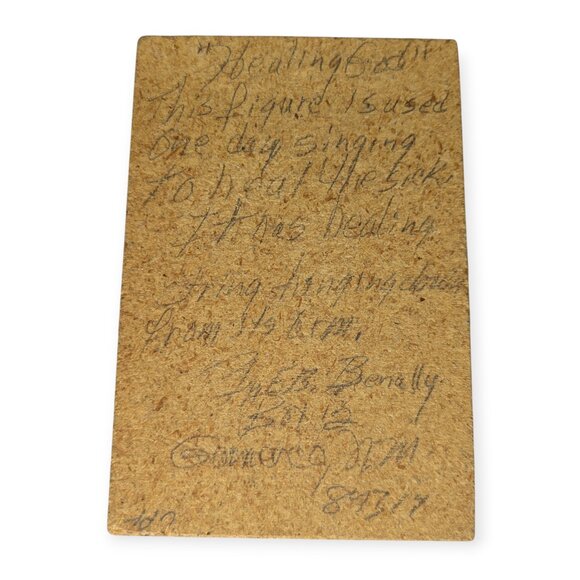 "Healing God"
This figure is used
one day singing
to heal the sicks
It has healing
string hanging down
from its arm.
B. Benally
Box 12
Gamerco, N.M
87317